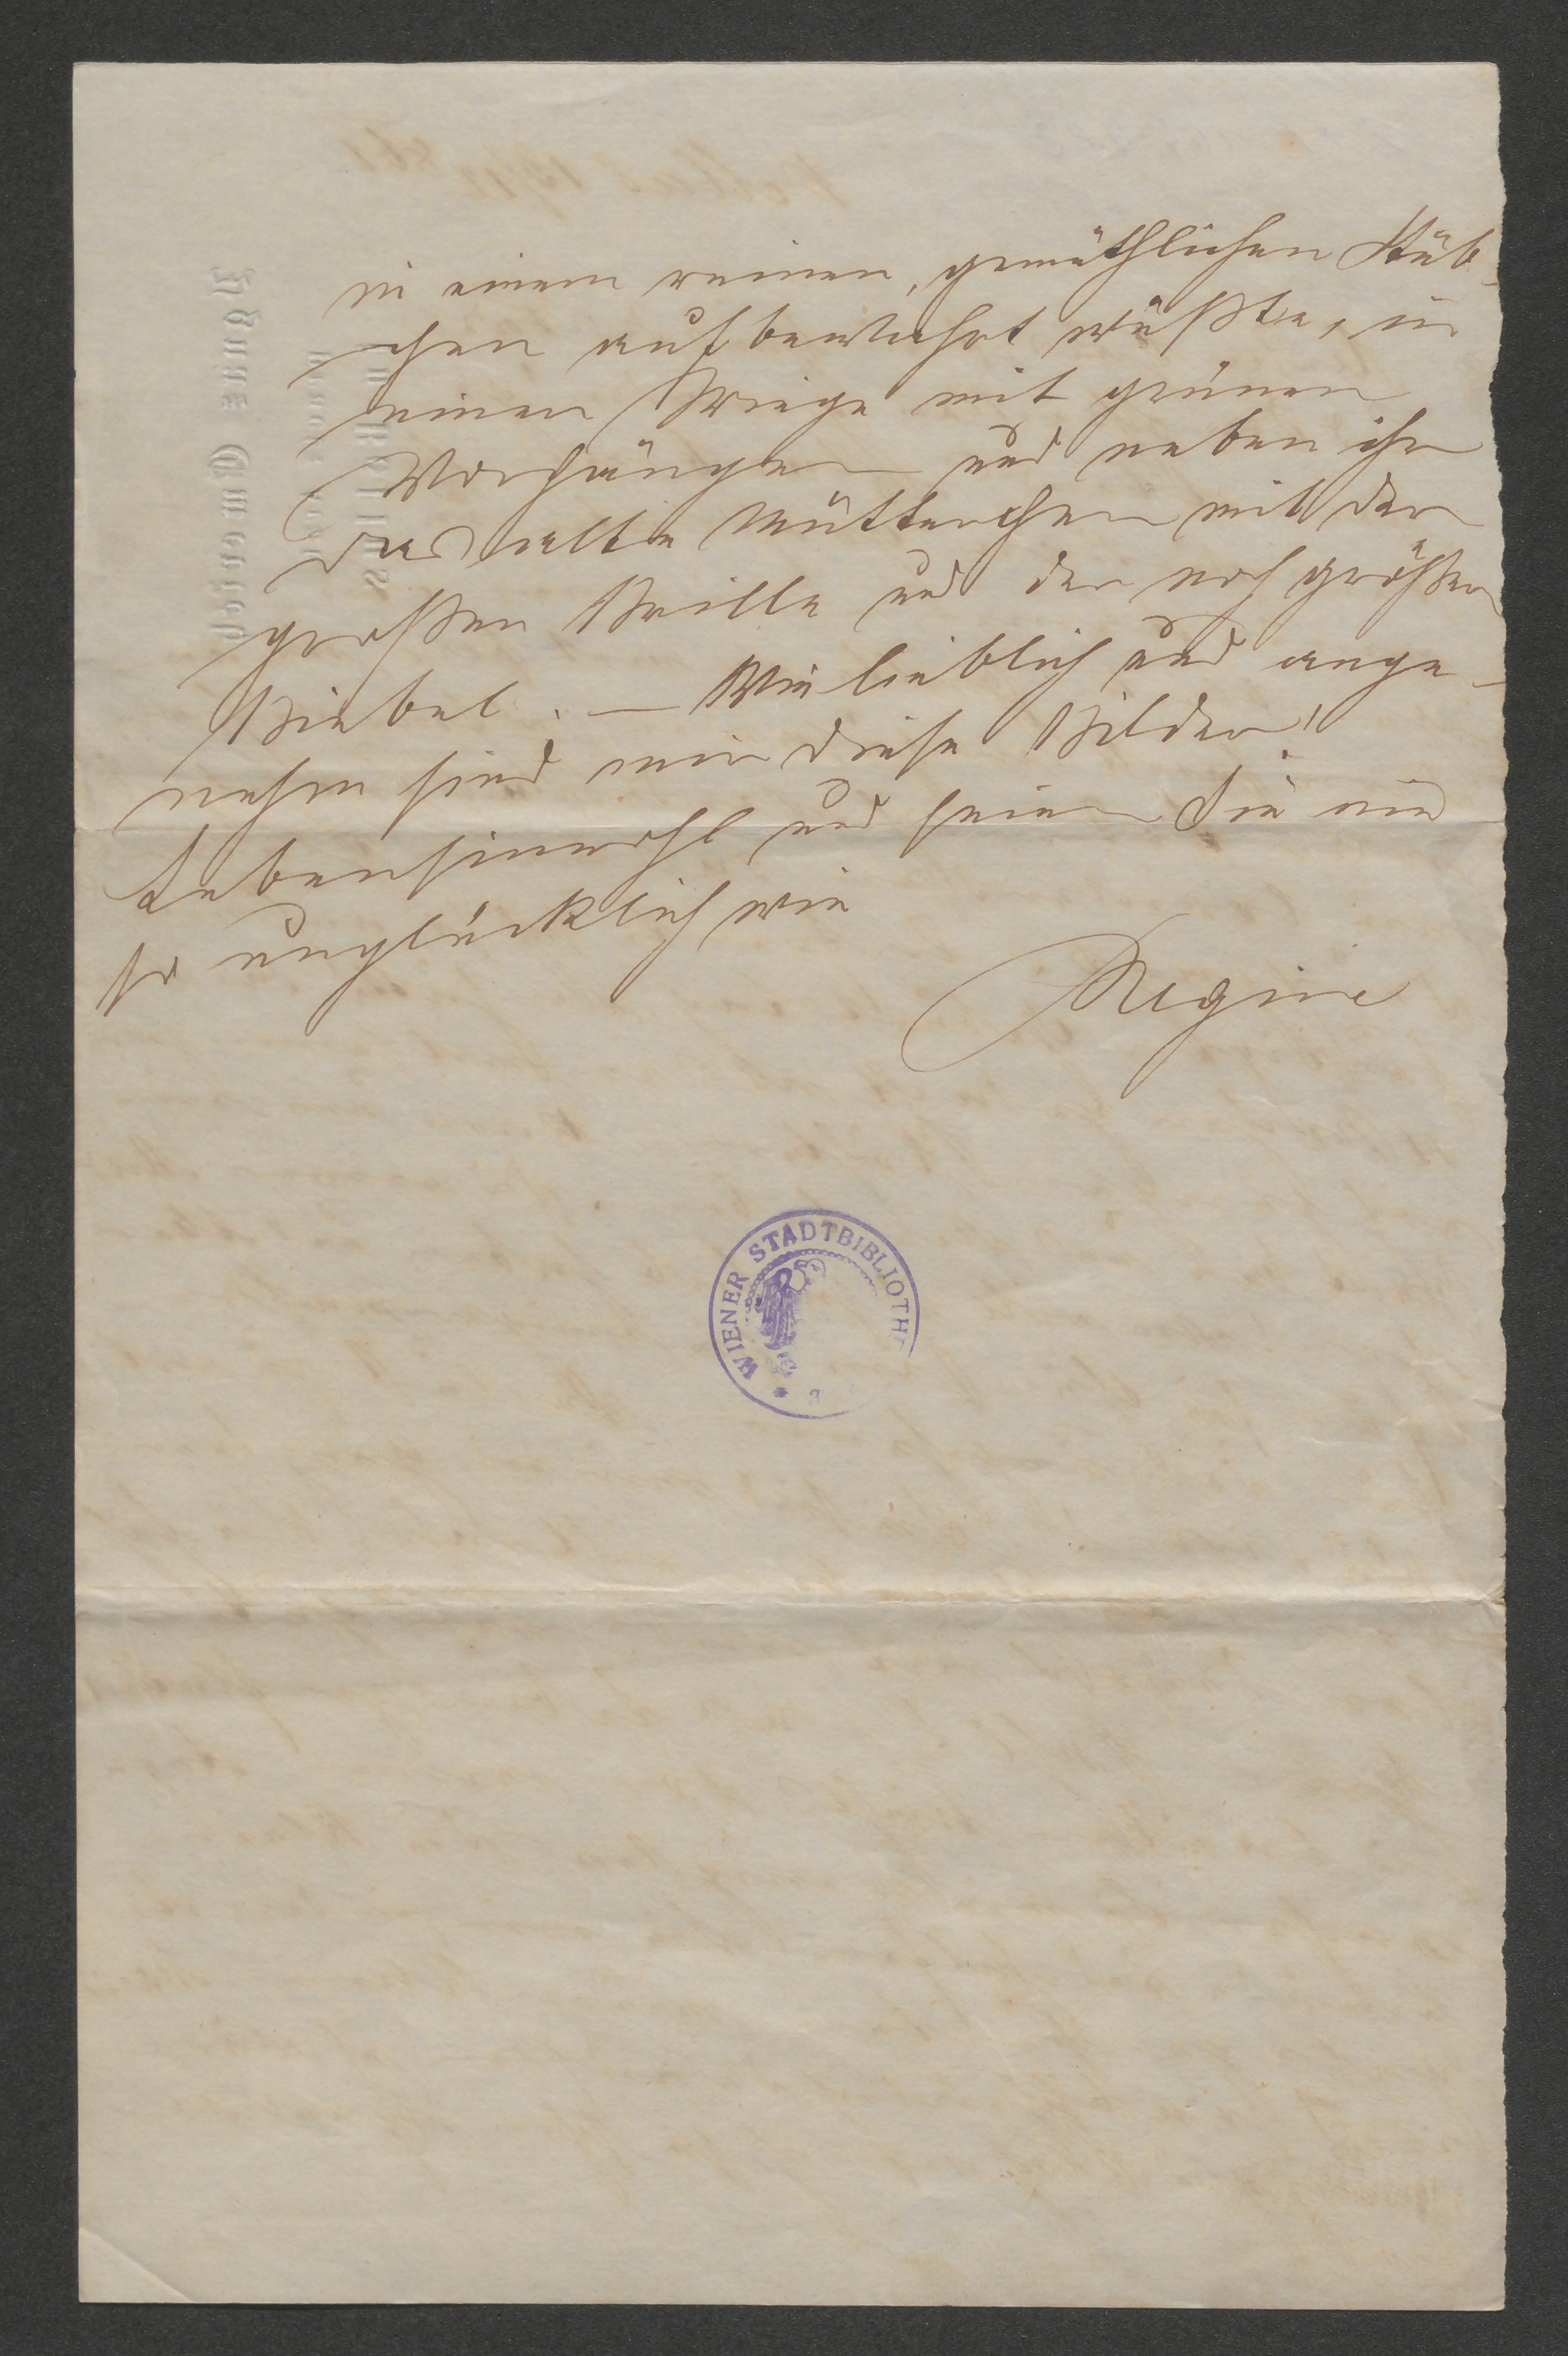 in einem reinen, gemüthlichen Stüb-
chen aufbewahrt wüßte, in
einer Wiege mit grünen
Vorhängen und neben ihr
das alte Mütterchen mit der
großen Brille und der noch größern
Biebel. — Wie lieblich und ange-
nehm sind mir diese Bilder!
Leben sie wohl und seien Sie nie
so unglücklich wie
Regine
WIENER STADTBIBLIOTHE